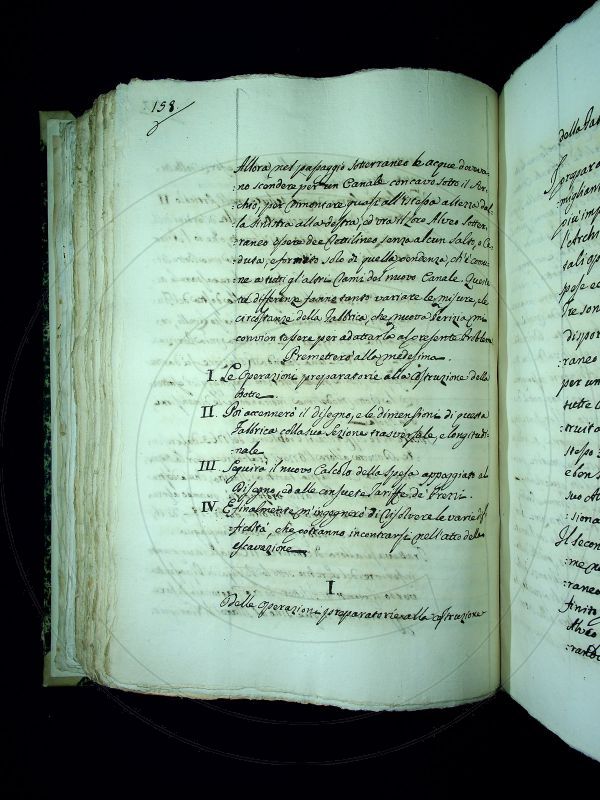 158.
Allora nel passaggio sotterraneo le acque doveva-
:no scendere per un Canale concavo sotto il Ser-
:chio, per rimontare quasi all'istessa altezza dal-
la sinistra alla destra, ed ora il loro Alveo sotter-
:raneo essere dee rettilineo, senza alcun salto, o Ca-
duta, e fornito solo di quella pendenza, ch'è comu-
:ne a tutti gl'altri rami del nuovo Canale. Queste
tal differenze fanno tanto variare le misure, e le
circostanze della Fabbrica, che nuova Perizia mi
convien tessere per adattarla al presente Problema
Premetterò alla medesima.
I. Le Operazioni preparatorie alla Costruzione della
Botte
II. Poi accennerò il disegno, e le dimensioni di questa
Fabbrica colla sua Sezione trasversale, e longitudi-
:nale
III. Seguirà il nuovo Calcolo della spesa appoggiato al
Disegno, ed alle consuete Tariffe de' Prezzi.
IV. E finalmente m'ingegnerò di risolvere le varie dif-
ficoltà, che potranno incontrarsi nell'atto della
escavazione
I
Delle operazioni preparatorie alla costruzione
della
preparo
migliani
più imp
l'Archi
tali op
pose ed
Tre son
dispor
raneo
per un
tutte C
stesso
suo
:siona
Il secon
:me pa
raneo
finito
Alveo